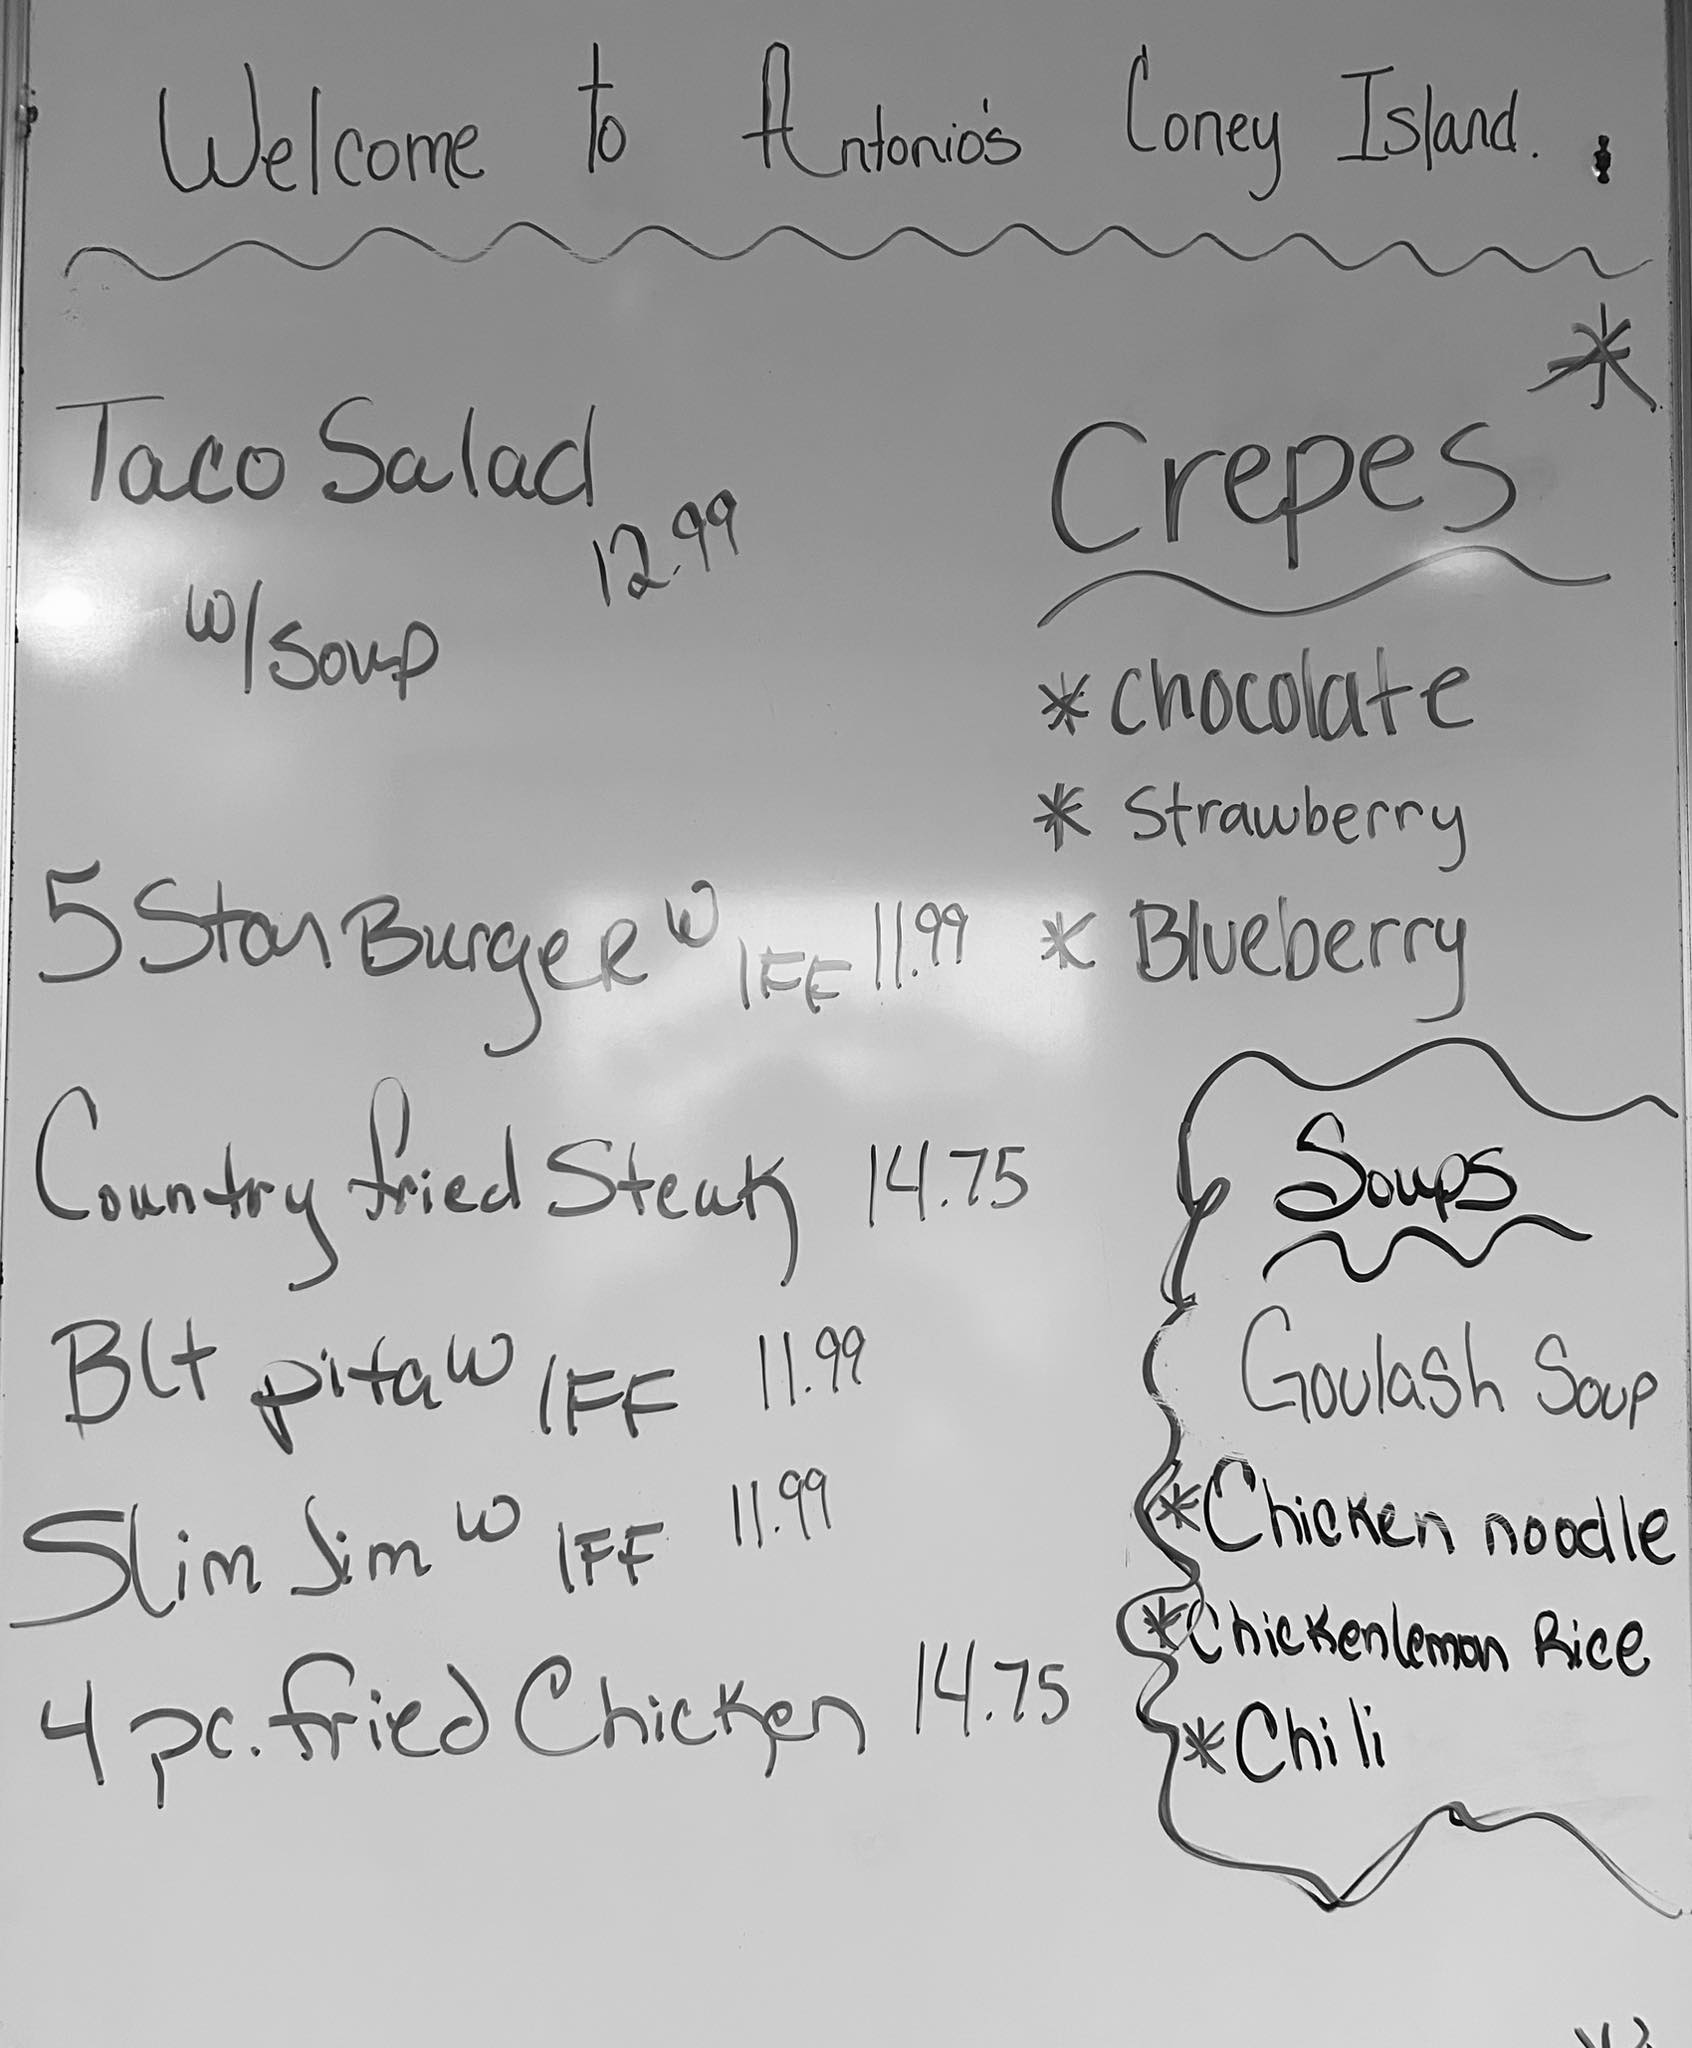 Welcome to Antonio's Coney Island.
Taco Salad
12.99
w/soup
5 Star Burger w/FF 11.99
Country fried Steak 14.75
Blt pita w/FF 11.99
Slim Jim w/FF 11.99
4 pc. fried Chicken 14.75
Crepes
* Chocolate
* Strawberry
* Blueberry
Soups
Goulash Soup
*Chicken noodle
*Chickenlemon Rice
*Chili